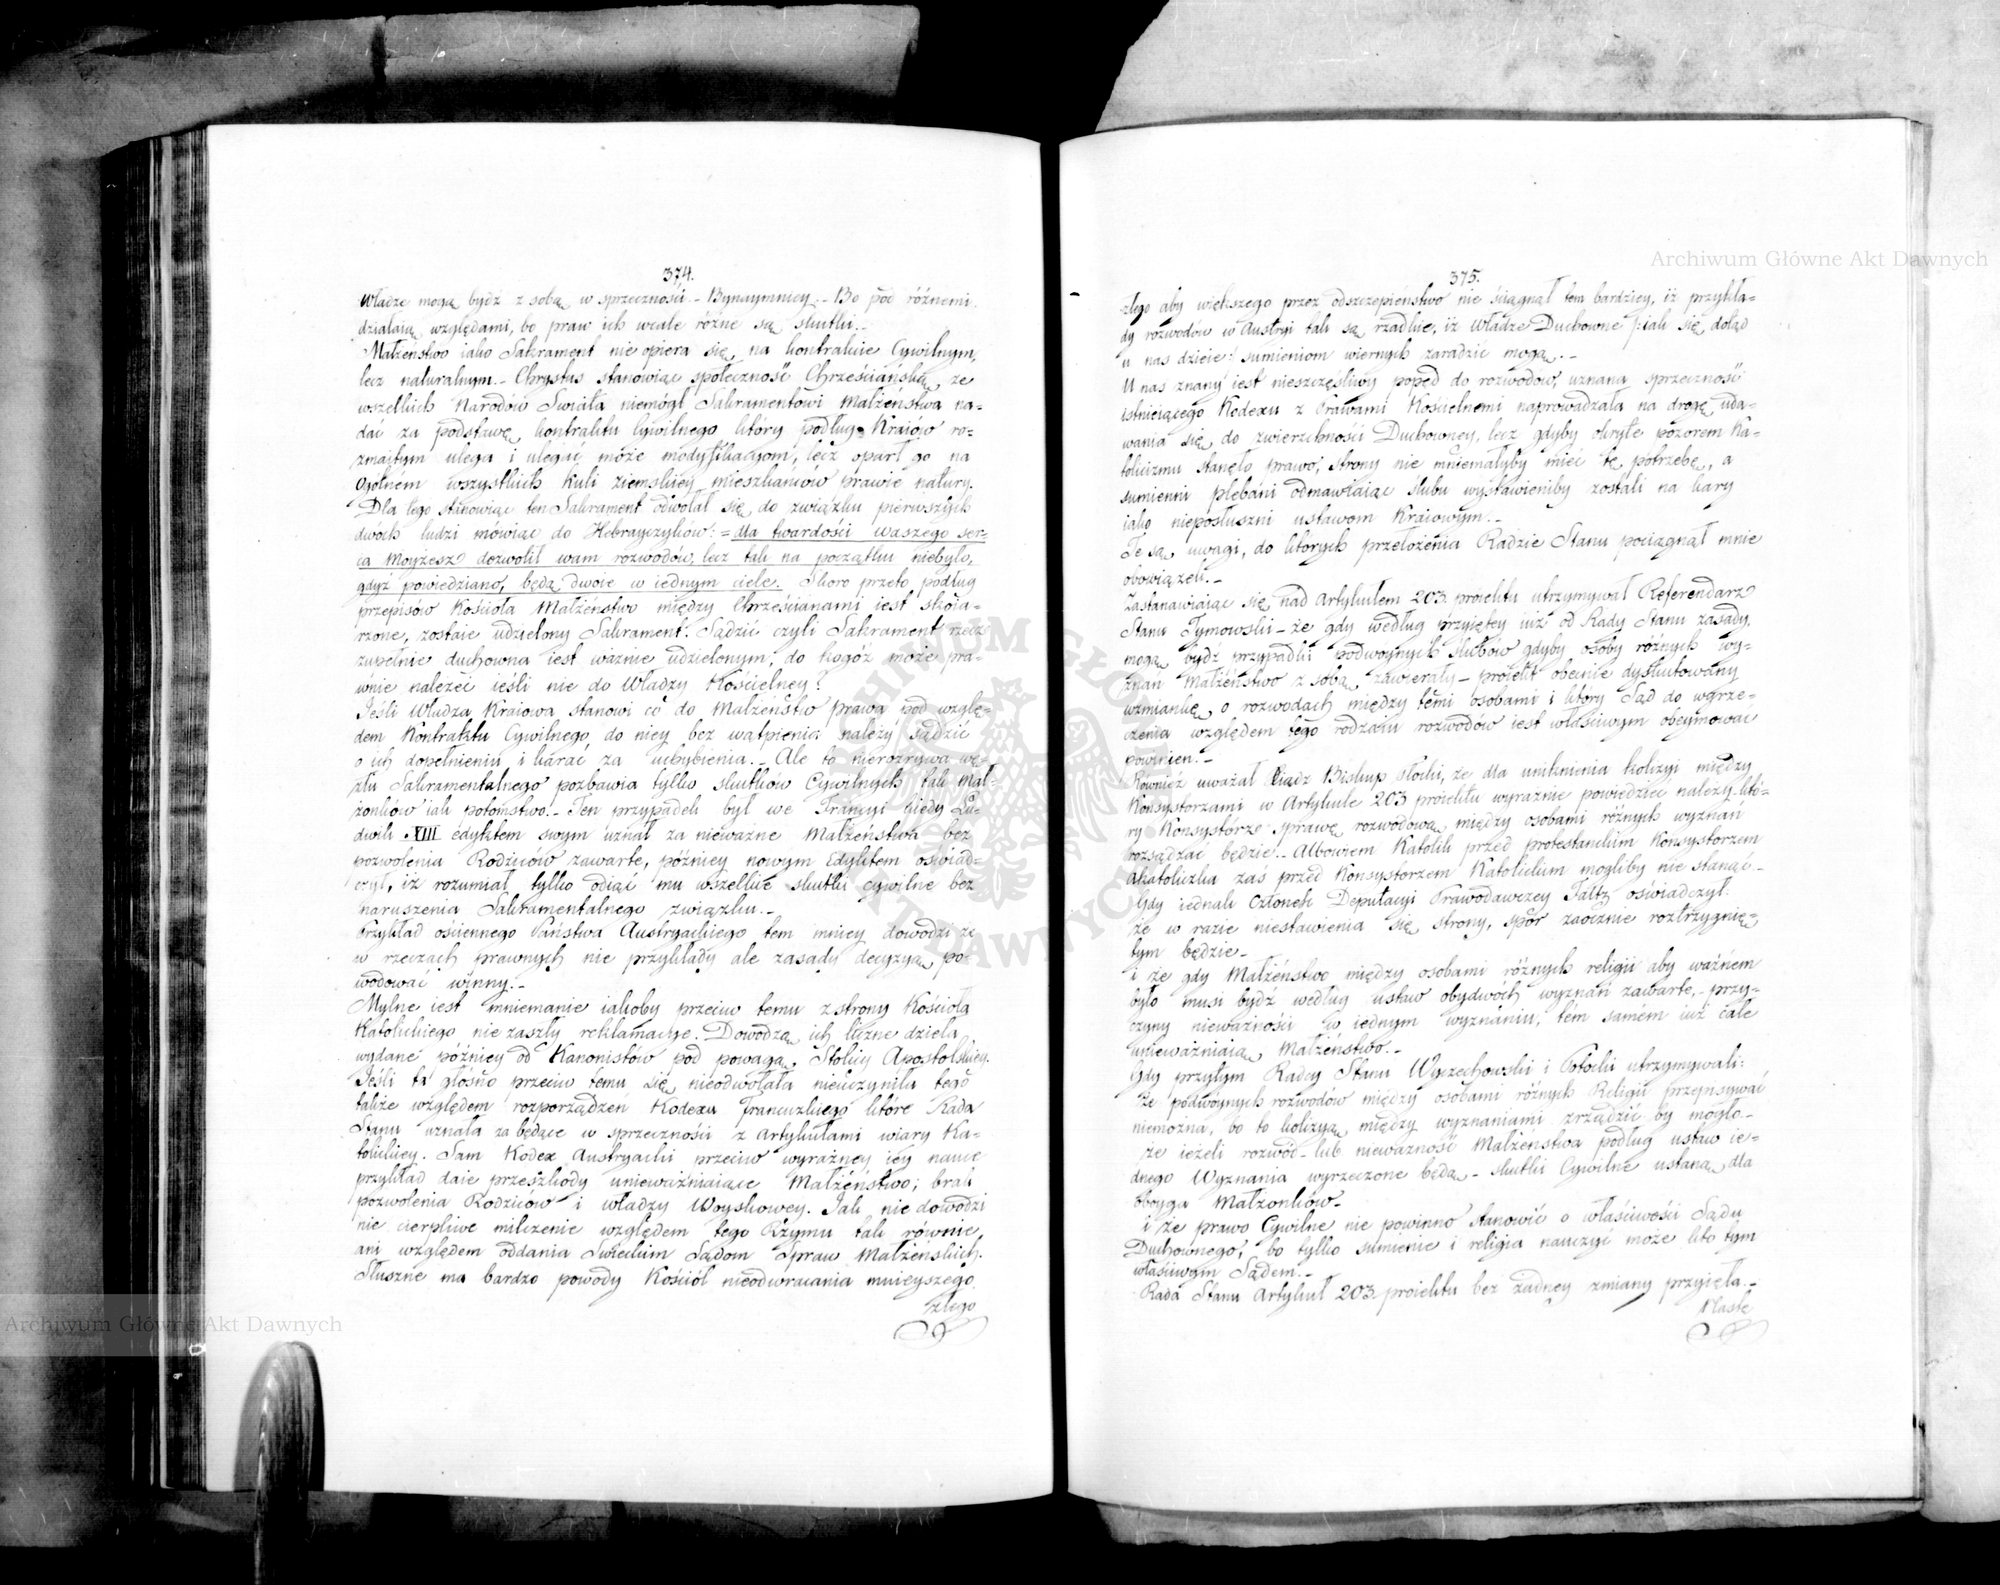 374.
Władze mogą bydź z sobą w sprzeczności – Bynaymniey – Bo pod różnemi
działaią względami, bo praw ich wcale różne są skutki. –
Małżeństwo iako Sakrament nie opiera się na kontrakcie Cywilnym,
lecz naturalnym. – Chrystus stanowiąc społeczność Chrześciańską ze
wszelkich Narodów Świata niemógł Sakramentowi Małżeństwa na=
dać za podstawę kontraktu Cywilnego który podług Kraiów ro=
zmaitym ulega i ulegać może modyfikacyom, lecz oparł go na
Ogólném wszystkich kuli ziemskiey mieszkańców prawie natury.
Dla tego stanowiąc ten Sakrament odwołał się do związku pierwszych
dwóch ludzi mówiąc do Hebrayczyków: = dla twardości waszego ser=
ca Moyżesz dozwolił wam rozwodów, lecz tak na początku niebyło,
gdyż powiedziano, będą dwoie w iednym ciele. Skoro przeto podług
przepisów Kościoła Małżeństwo między Chrześcianami iest skoia=
rzone, zostaie udzielony Sakrament. Sądzić czyli Sakrament rzecz
zupełnie duchowna iest ważnie udzielonym, do kogóż może pra=
wnie należeć ieśli nie do Władzy Kościelney?
Jeśli Władza Kraiowa stanowi co do Małżeństw prawa pod wzglę=
dem Kontraktu Cywilnego, do niey bez wątpienia należy sądzić
o ich dopełnieniu i karać za uchybienia. – Ale to nierozrywa wę=
zła Sakramentalnego pozbawia tylko skutków Cywilnych tak Mał=
żonków iak potomstwo. – Ten przypadek był we Francyi kiedy Lu=
dwik XIII edyktem swym uznał za nieważne Małżeństwa bez
pozwolenia Rodziców zawarte, późniey nowym Edyktem oświad=
czył, iż rozumiał tylko odiąć mu wszelkie skutki cywilne bez
naruszenia Sakramentalnego związku. –
Przykład ościennego Państwa Austryackiego tem mniey dowodzi że
w rzeczach prawnych nie przykłady ale zasady decyzyą po=
wodować winny. –
Mylne iest mniemanie iakoby przeciw temu z strony Kościoła
Katolickiego nie zaszły reklamacye. Dowodzą ich liczne dzieła
wydane późniey od Kanonistów pod powagą Stolicy Apostolskiey.
Jeśli ta głośno przeciw temu się nieodwołała nieuczyniła tego
także względem rozporządzeń Kodexu Francuzkiego które Rada
Stanu uznała za będące w sprzeczności z Artykułami wiary Ka=
tolickiey. Sam Kodex Austryacki przeciw wyrażney iey nauce
przykład daie przeszkody unieważniaiące Małżeństwo; brak
pozwolenia Rodziców i władzy Woyskowey. Jak nie dowodzi
nic cierpliwe milczenie względem tego Rzymu tak równie,
ani względem oddania Świeckim Sądom Spraw Małżeńskich.
Słuszne ma bardzo powody Kościół nieodwracania mnieyszego
złego
375.
złego aby większego przez odszczepieństwo nie ściągnął tem bardziey, iż przykła=
dy rozwodów w Austryi tak są rzadkie, iż Władze Duchowne /:iak się dotąd
u nas dzieie:/ sumieniom wiernych zaradzić mogą. –
U nas znany iest nieszczęśliwy popęd do rozwodów, uznana sprzeczność
istnieiącego Kodexu z Prawami Kościelnemi naprowadzała na drogę uda=
wania się do zwierzchności Duchowney, lecz gdyby okryte pozorem Ka=
tolicizmu stanęło prawo, strony nie mniemałyby mieć tę potrzebę, a
sumienni plebani odmawiaiąc ślubu wystawieniby zostali na kary
iako nieposłuszni ustawom Kraiowym. –
Te są uwagi, do których przełożenia Radzie Stanu pociągnął mnie
obowiązek. –
Zastanawiaiąc się nad Artykułem 203. proiektu utrzymywał Referendarz
Stanu Tymowski – że gdy według przyiętey iuż od Rady Stanu zasady,
mogą bydź przypadki podwoynych ślubów gdyby osoby różnych wy=
znań Małżeństwo z sobą zawierały – proiekt obecnie dyskutowany
wzmiankę o rozwodach między temi osobami i który Sąd do wyrze=
czenia względem tego rodzaiu rozwodów iest właściwym obeymować
powinien. –
Również uważał Xiądz Biskup Płocki, że dla uniknienia kolizyi między
Konsystorzami w Artykule 203 proiektu wyraznie powiedzieć należy któ=
ry Konsystorz sprawę rozwodową między osobami różnych wyznań
rozsądzać będzie. – Albowiem Katolik przed protestanckim Konsystorzem
Akatoliczka zaś przed Konsystorzem Katolickim mogliby nie stanąć –
Gdy iednak Członek Deputacyi Prawodawczey Faltz oświadczył:
że w razie niestawienia się strony, spór zaocznie roztrzygnię=
tym będzie –
i że gdy Małżeństwo między osobami różnych religii aby ważném
było musi bydź według ustaw obydwóch wyznań zawarte, – przy=
czyny nieważności w iednym wyznaniu, tem samem iuż całe
unieważniaią Małżeństwo. –
Gdy przytym Radcy Stanu Wyczechowski i Potocki utrzymywali:
że podwoynych rozwodów między osobami różnych Religii przepisywać
niemożna, bo to kolizyą między wyznaniami zrządzić by mogło –
że ieżeli rozwód – lub nieważność Małżeństwa podług ustaw ie=
dnego Wyznania wyrzeczone będą – skutki Cywilne ustaną dla
oboyga Małżonków –
i że prawo Cywilne nie powinno stanowić o właściwości Sądu
Duchownego, bo tylko sumienie i religia nauczyć może kto tym
właściwym Sądem. –
Rada Stanu Artykuł 203. proiektu bez żadney zmiany przyięła. –
Nastę
Archiwum Główne Akt Dawnych
Archiwum Główne Akt Dawnych
ARCHIWUM GŁÓWNE AKT DAWNYCH